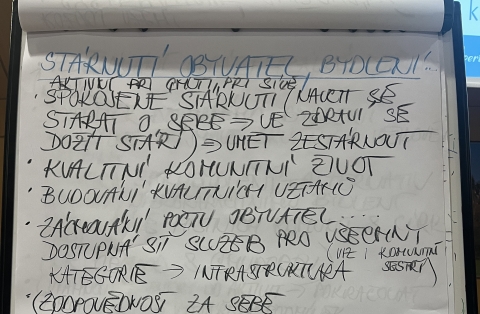 STÁRNUTÍ OBYVATEL, BYDLENÍ..
AKTIVNÍ PŘI CHUTI, PŘI SÍLE
· SPOKOJENÉ STÁRNUTÍ (NAUČIT SE
STARAT O SEBE → VE ZDRAVÍ SE
DOŽÍT STÁŘÍ) → UMĚT ZESTÁRNOUT
· KVALITNÍ KOMUNITNÍ ŽIVOT
· BUDOVÁNÍ KVALITNÍCH VZTAHŮ
· ZACHOVÁNÍ POČTU OBYVATEL.....
· DOSTUPNÁ SÍŤ SLUŽEB PRO VŠECHNY
(VIZ I KOMUNITNÍ
KATEGORIE → INFRASTRUKTURA
SESTRY)
· (ZODPOVĚDNOST ZA SEBE